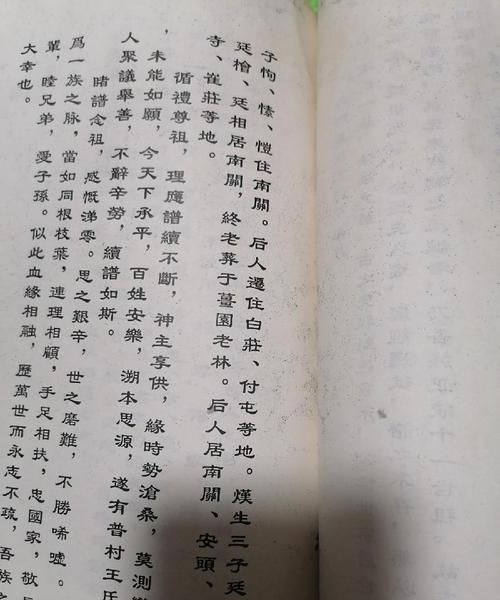 子恂、愫、愷住南關。后人遷住白莊、付屯等地。煐生三子廷
廷檜、廷相居南關，終老葬于薑園老林。后人居南關、安頭、
寺、崔莊等地。
循禮尊祖，理應譜續不斷，神主享供，緣時勢滄桑，莫測
，未能如願，今天下承平，百姓安樂，溯本思源，遂有普村王氏
人聚議舉善，不辭辛勞，續譜如斯。
睹譜念祖，感慨涕零。思之艱辛，世之磨難，不勝唏噓。
爲一族之脉，當如同根枝葉，連理相顧，手足相扶，忠國家，敬
輩，睦兄弟，愛子孫。似此血緣相融，歷萬世而永志不疏，吾族之
大幸也。